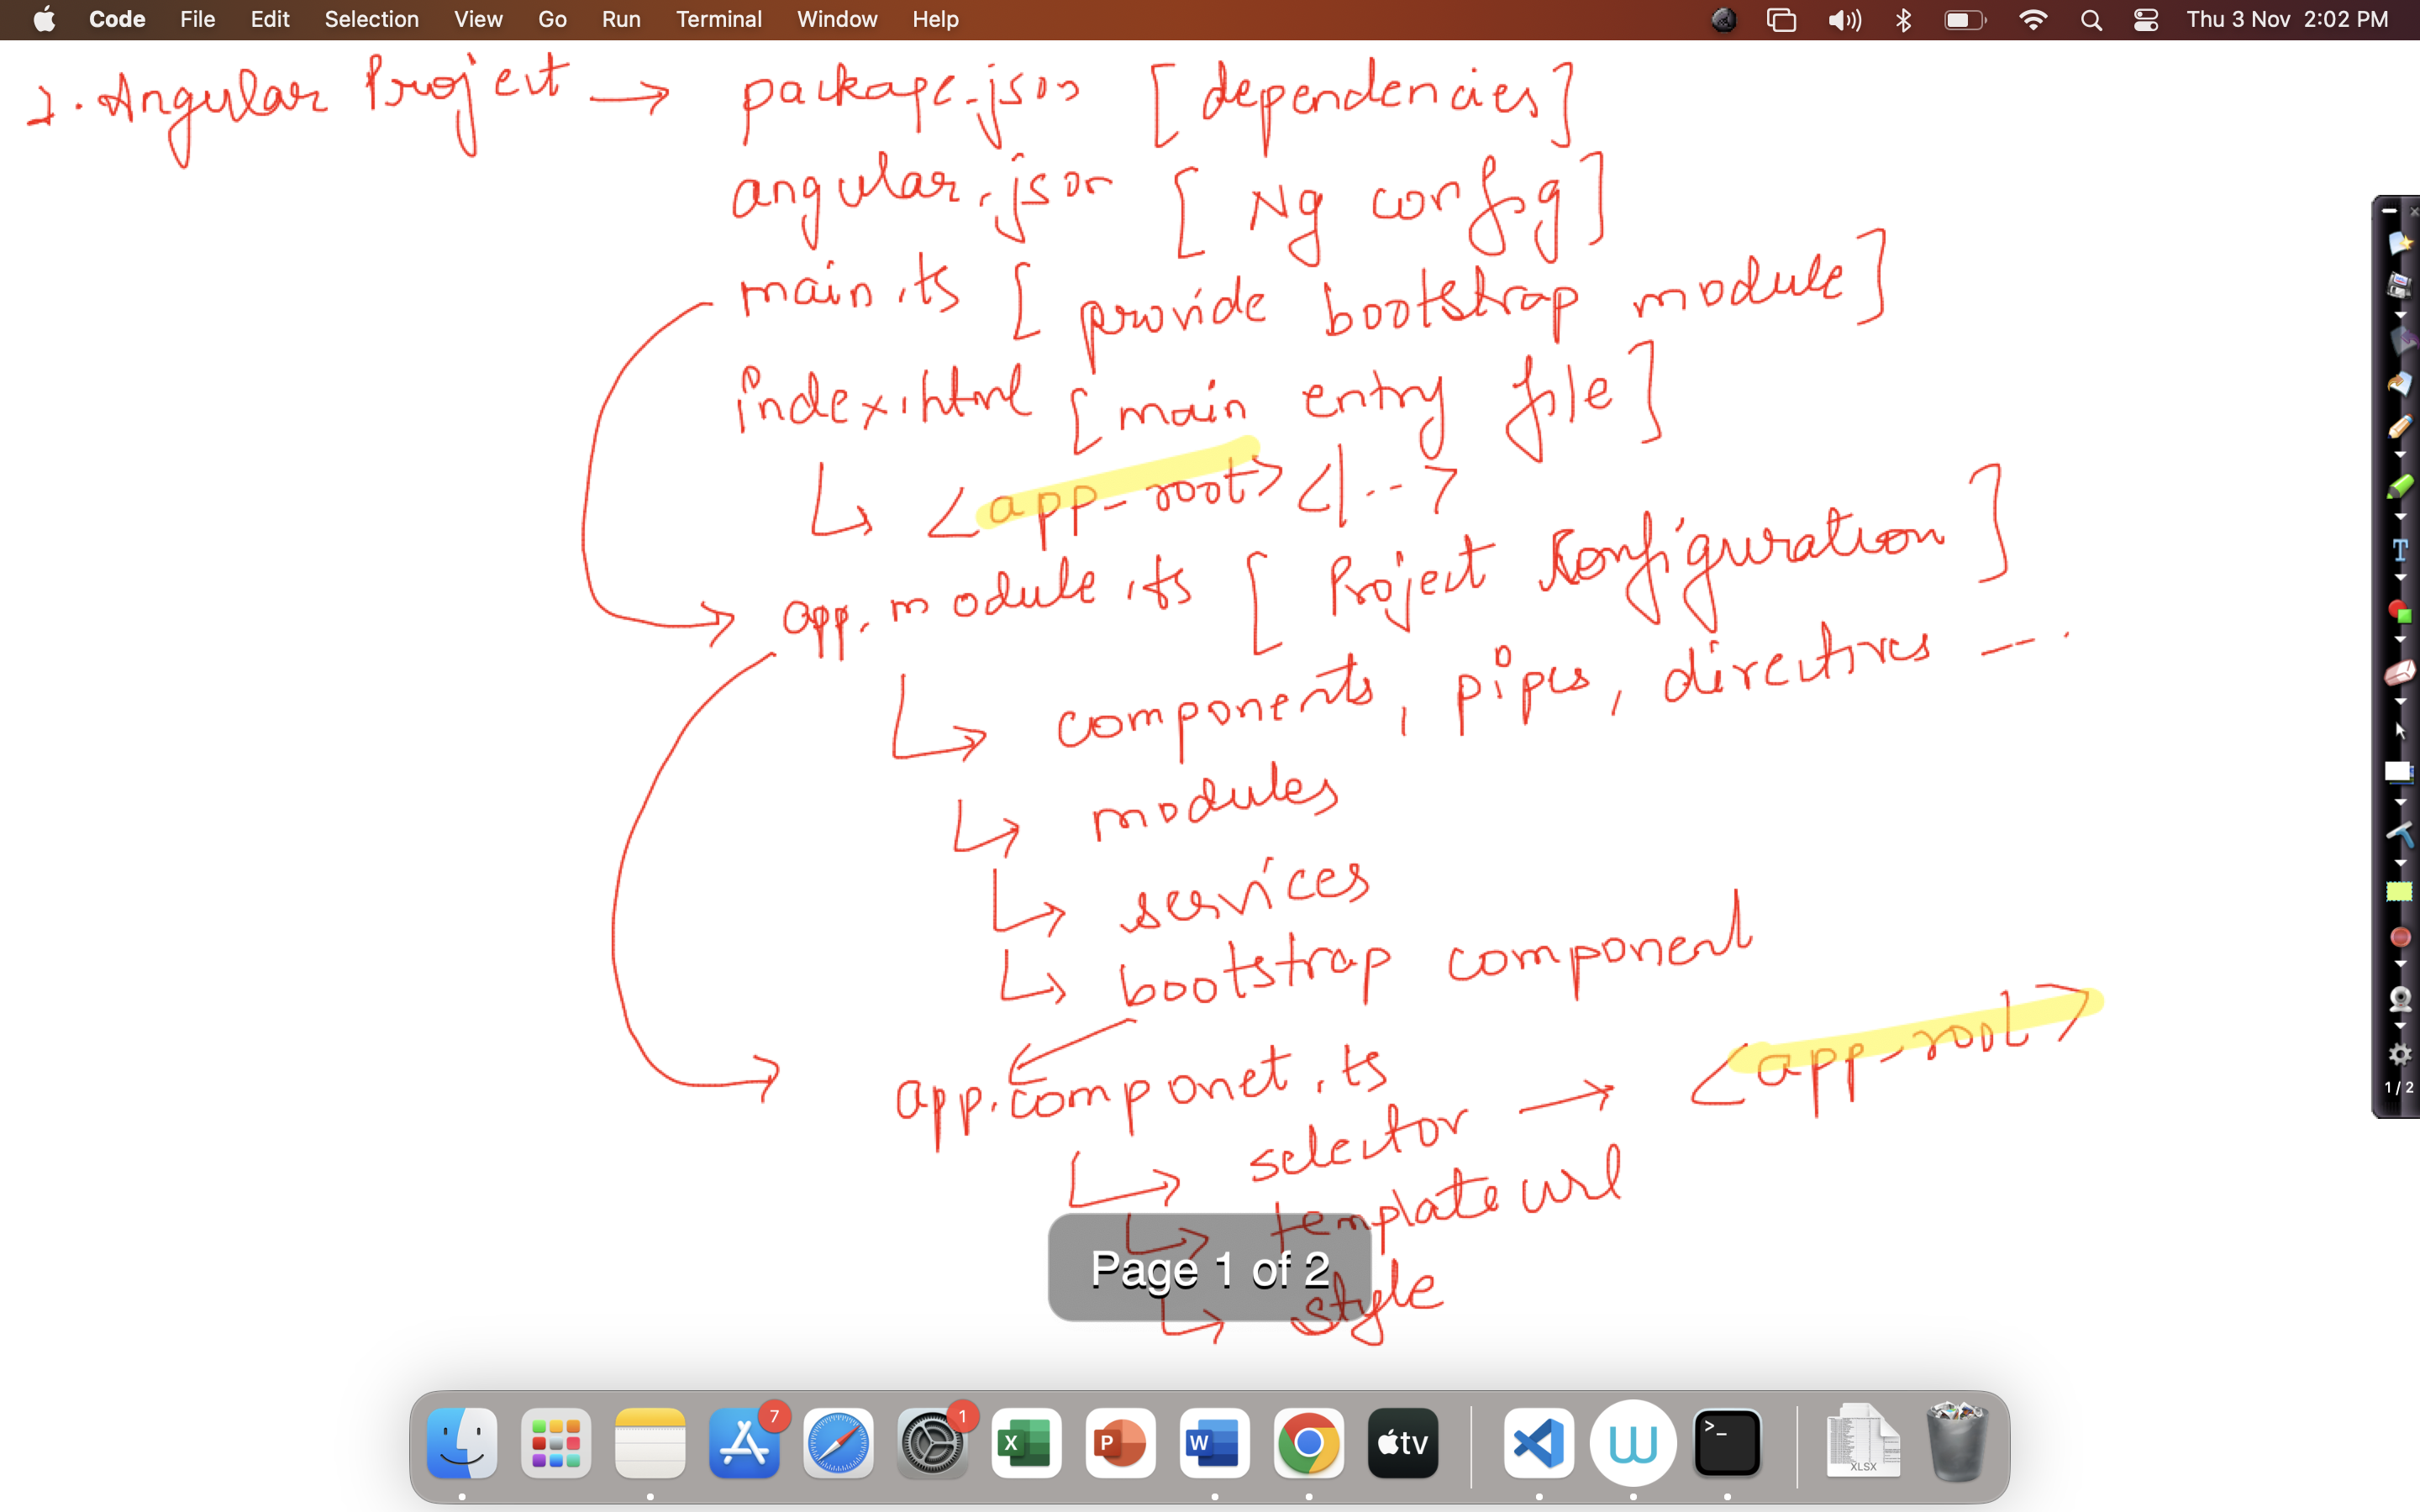 Code File Edit Selection View Go Run Terminal Window Help Thu 3 Nov 2:02 PM
1. Angular Project → package.json [dependencies]
angular.json [Ng config]
main.ts [provide bootstrap module]
index.html [main entry file]
<app-root></--->
app.module.ts [Project Configuration]
components, pipes, directives ---.
modules
services
bootstrap component
app.componet.ts
selector → <app-root>
template url
style
Page 1 of 2
1/2
7
1
X
P
W
tv
W
>_
XLSX